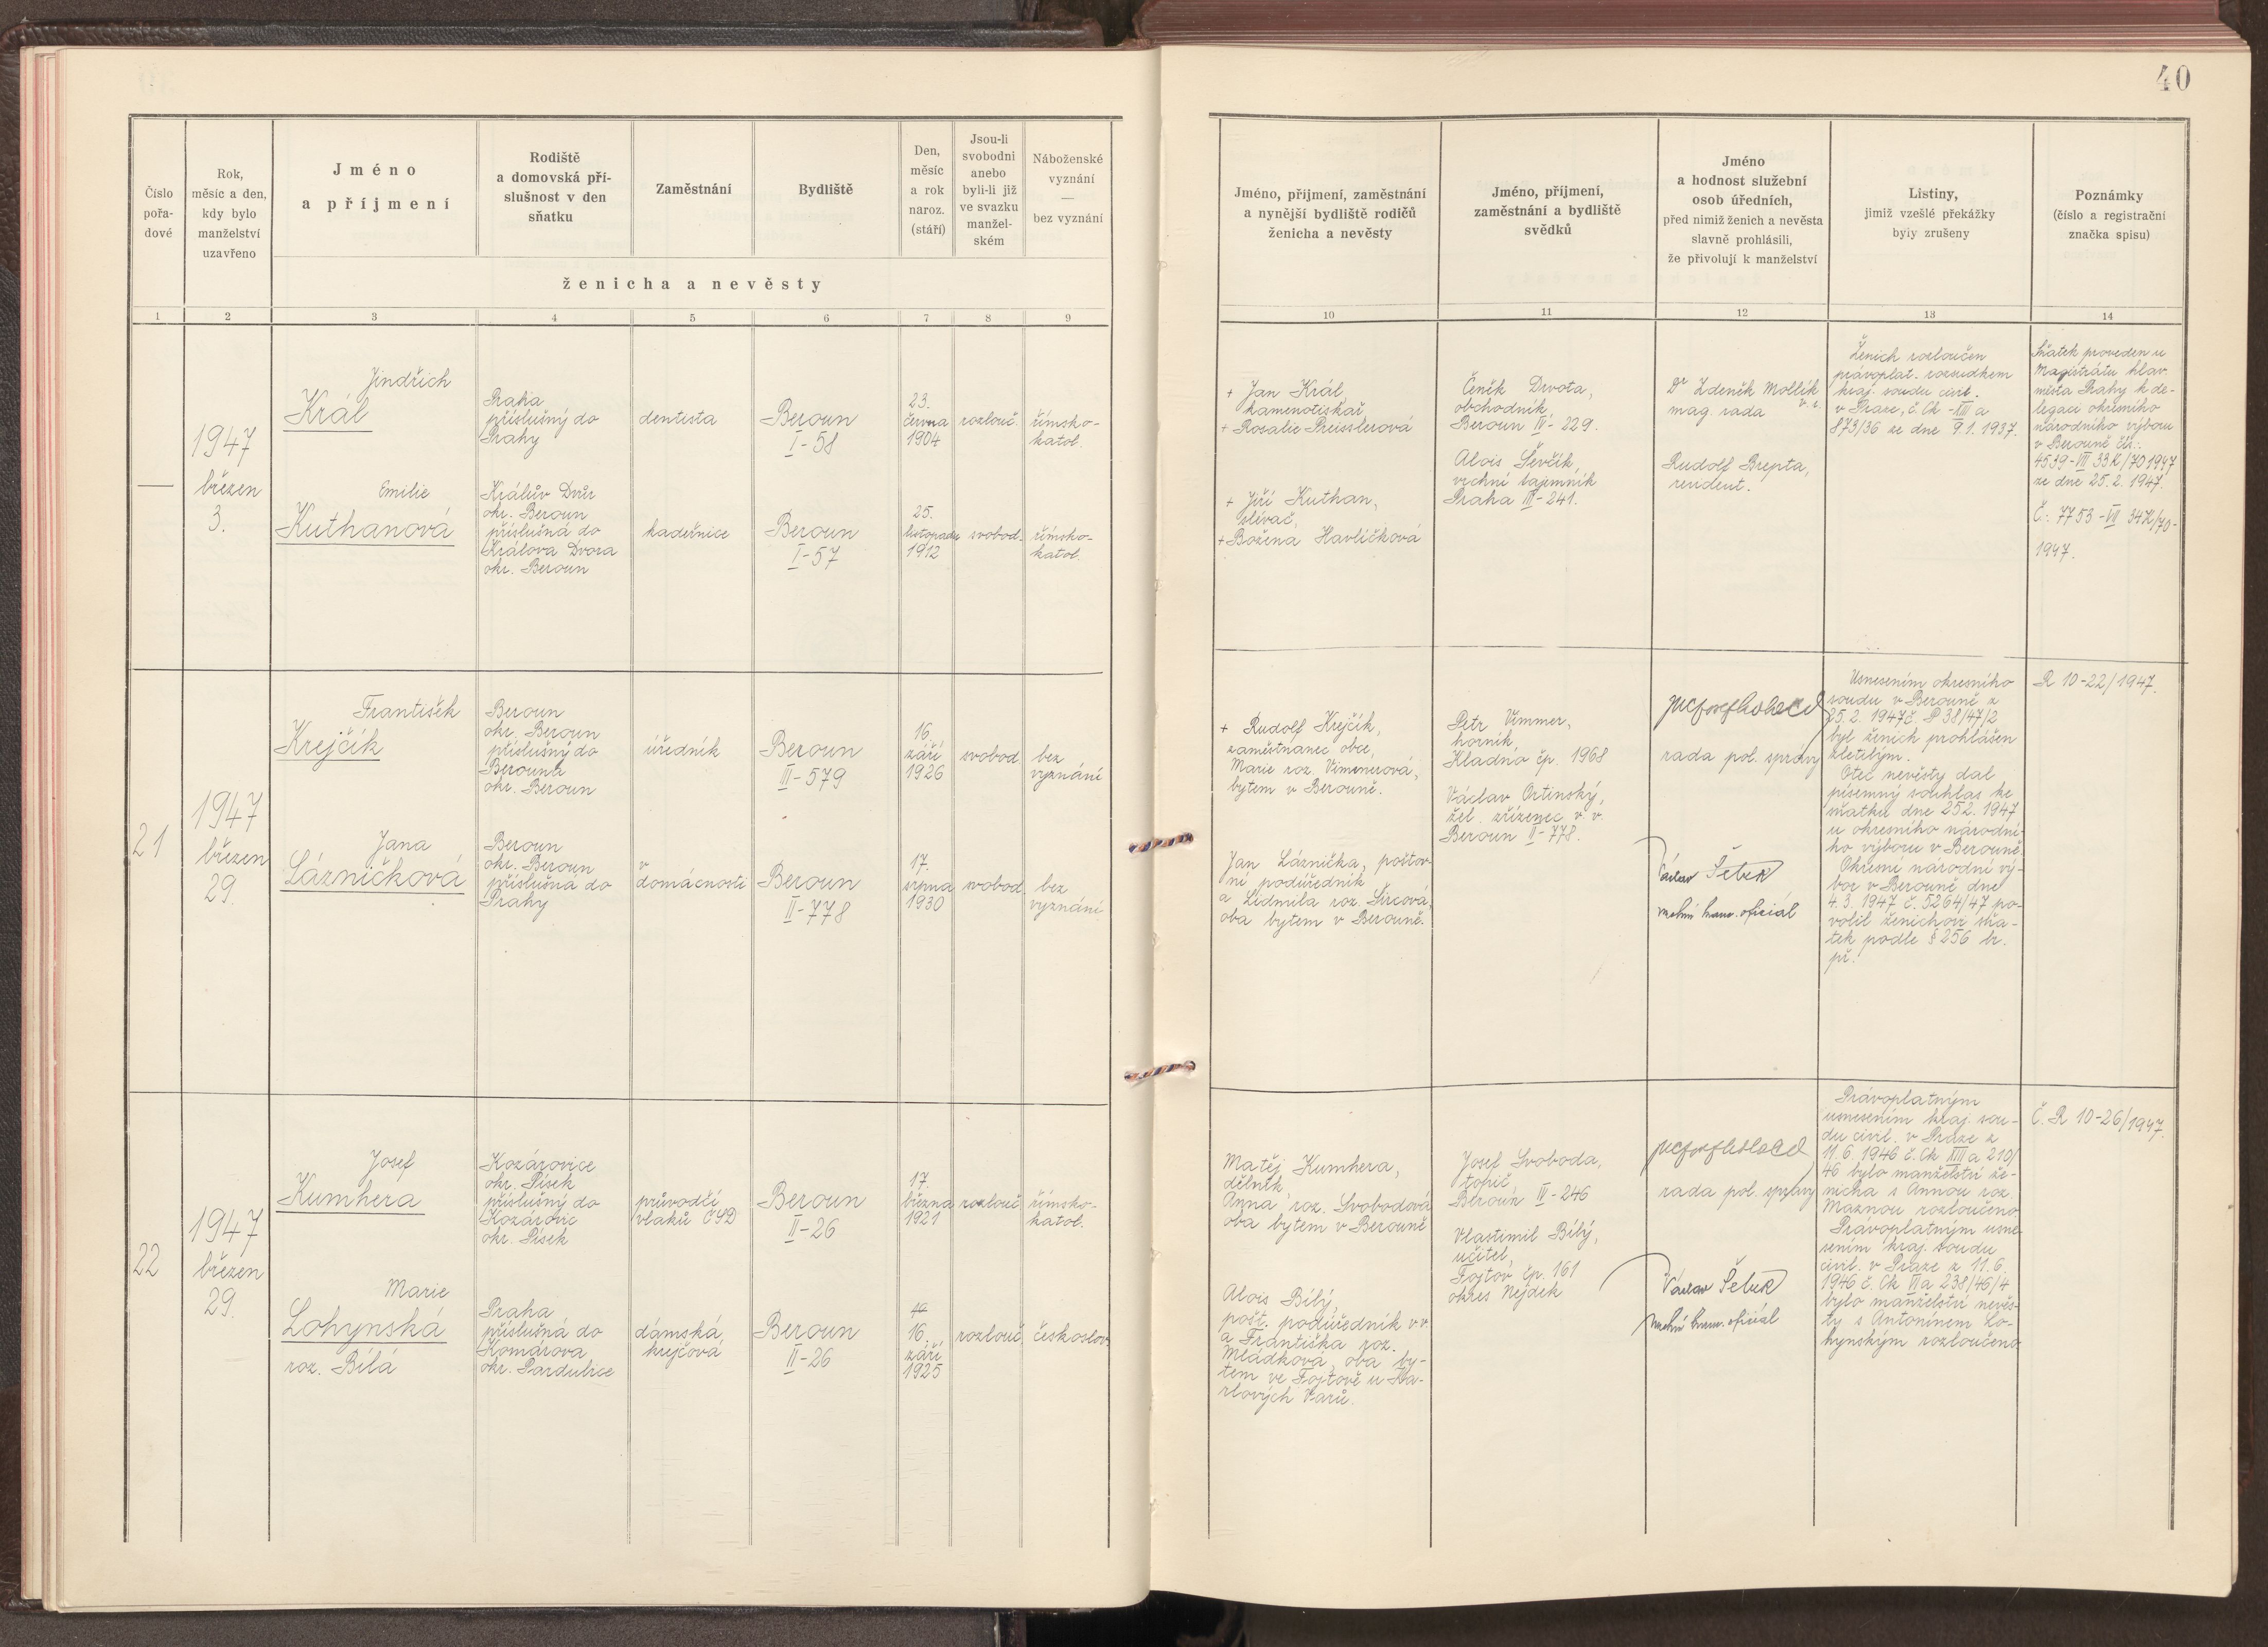 40
Číslo
pořa-
dové
Rok,
měsíc a den,
kdy bylo
manželství
uzavřeno
Jméno
a příjmení
Rodiště
a domovská pří-
slušnost v den
sňatku
Zaměstnání
Bydliště
Den,
měsíc
a rok
naroz.
(stáří)
Jsou-li
svobodni
anebo
byli-li již
ve svazku
manžel-
ském
Náboženské
vyznání
—
bez vyznání
ženicha a nevěsty
Jméno, příjmení, zaměstnání
a nynější bydliště rodičů
ženicha a nevěsty
Jméno, příjmení,
zaměstnání a bydliště
svědků
Jméno
a hodnost služební
osob úředních,
před nimiž ženich a nevěsta
slavně prohlásili,
že přivolují k manželství
Listiny,
jimiž vzešlé překážky
byly zrušeny
Poznámky
(číslo a registrační
značka spisu)
1 2 3 4 5 6 7 8 9 10 11 12 13 14
—
1947
březen
3.
Jindřich
Král
Praha
příslušný do
Prahy
dentista
Beroun
I-58
23.
června
1904
rozlouč.
římsko-
katol.
Emilie
Kuthanová
Králův Dvůr
okr. Beroun
příslušná do
Králova Dvora
okr. Beroun
kadeřnice
Beroun
I-57
25.
listopadu
1912
svobod.
římsko-
katol.
+ Jan Král,
kamenotiskař
+ Rosalie Preisslerová
+ Jiří Kuthan,
slévač,
+ Božena Havlíčková
Čeněk Drvota,
obchodník,
Beroun IV-229.
Alois Ševčík,
vrchní tajemník
Praha III-241.
Dr Zdeněk Mollík
mag. rada v. r.
Rudolf Brepta,
revident.
Ženich rozloučen
právoplat. rozsudkem
kraj. soudu civil.
v Praze, č. Ck -XIII a
873/36 ze dne 9.1.1937.
Sňatek proveden u
Magistrátu hlav.
města Prahy k de-
legaci okresního
národního výboru
v Berouně čís.:
4539-VII 33K/70 1947
ze dne 25.2.1947.
Č.: 7753-VII 34K/70-
1947.
21
1947
březen
29.
František
Krejčík
Beroun
okr. Beroun
příslušný do
Berouna
okr. Beroun
úředník
Beroun
III-579
16.
září
1926
svobod.
bez
vyznání
Jana
Lázničková
Beroun
okr. Beroun
příslušná do
Prahy
v
domácnosti
Beroun
II-778
17.
srpna
1930
svobod.
bez
vyznání
+ Rudolf Krejčík,
zaměstnanec obce,
Marie roz. Vimmerová,
bytem v Berouně.
Jan Láznička, poštov-
ní podúředník
a Lidmila roz. Šircová,
oba bytem v Berouně.
Petr Vimmer,
horník,
Kladno čp. 1968
Václav Ortinský,
žel. zřízenec v v.
Beroun II-778.
rada pol. správy
Václav Šebek
oficiál
Usnesením okresního
soudu v Berouně z
25.2.1947 č. P 38/47/2
byl ženich prohlášen
zletilým.
Otec nevěsty dal
písemný souhlas ke
sňatku dne 25.2.1947
u okresního národní-
ho výboru v Berouně.
Okresní národní vý-
bor v Berouně dne
4.3.1947 č. 5264/47 po-
volil ženichovi sňa-
tek podle § 256 tr.
př.
R 10-22/1947.
22
1947
březen
29.
Josef
Kumhera
Kozárovice
okr. Písek
příslušný do
Kozárovic
okr. Písek
průvodčí
vlaků ČSD
Beroun
II-26
17.
března
1921
rozlouč.
římsko-
katol.
Marie
Lohynská
roz. Bílá
Praha
příslušná do
Komárova
okr. Pardubice
dámská
krejčová
Beroun
II-26
16.
září
1925
rozlouč.
českoslov.
Matěj Kumhera,
dělník,
Anna roz. Svobodová
oba bytem v Berouně
Alois Bílý,
pošt. podúředník v v
a Františka roz.
Mládková, oba by-
tem ve Fojtově u Ka-
rlových Varů.
Josef Svoboda,
topič,
Beroun IV-246
Vlastimil Bílý,
učitel,
Fojtov čp. 161
okres Nejdek
rada pol. správy
Václav Šebek
oficiál
Právoplatným
usnesením kraj. sou-
du civil. v Praze z
11.6.1946 č. Ck XIII a 210/
46 bylo manželství že-
nicha s Annou roz.
Maznou rozloučeno
Právoplatným usne-
sením kraj. soudu
civil. v Praze z 11.6.
1946 č. Ck VI a 238/46/4
bylo manželství nevěs-
ty s Antonínem Lo-
hynským rozloučeno
Č. R 10-26/1947.